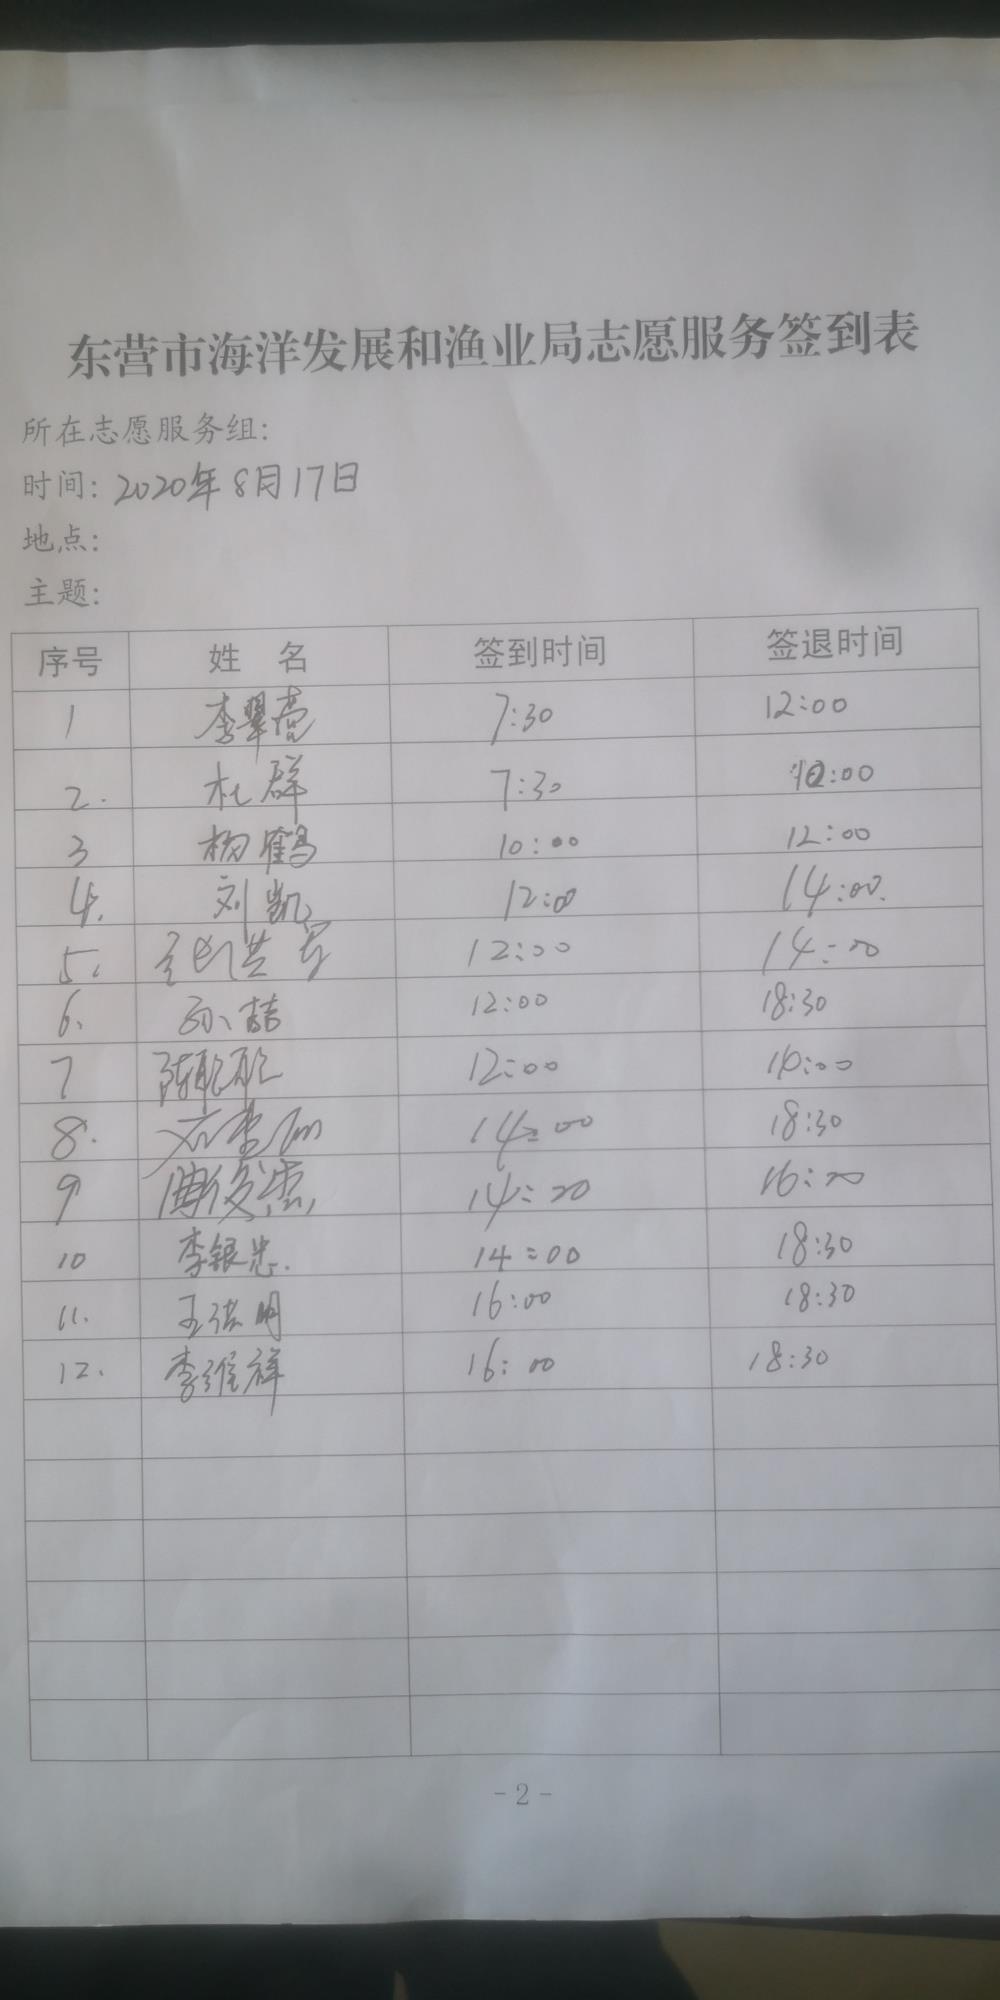 东营市海洋发展和渔业局志愿服务签到表
所在志愿服务组:
时间: 2020年8月17日
地点:
主题:
序号 姓 名 签到时间 签退时间
1 李翠莺 7:30 12:00
2. 杜群 7:30 :00
3 杨鹤 10:00 12:00
4. 刘凯 12:00 14:00.
5. 12:00 14:00
6. 孙喆 12:00 18:30
7 陈聪聪 12:00 14:00
8. 14:00 18:30
9 俊杰 14:20 16:20
10 李银忠. 14:00 18:30
11. 王洪明 16:00 18:30
12. 李维祥 16:00 18:30
- 2 -